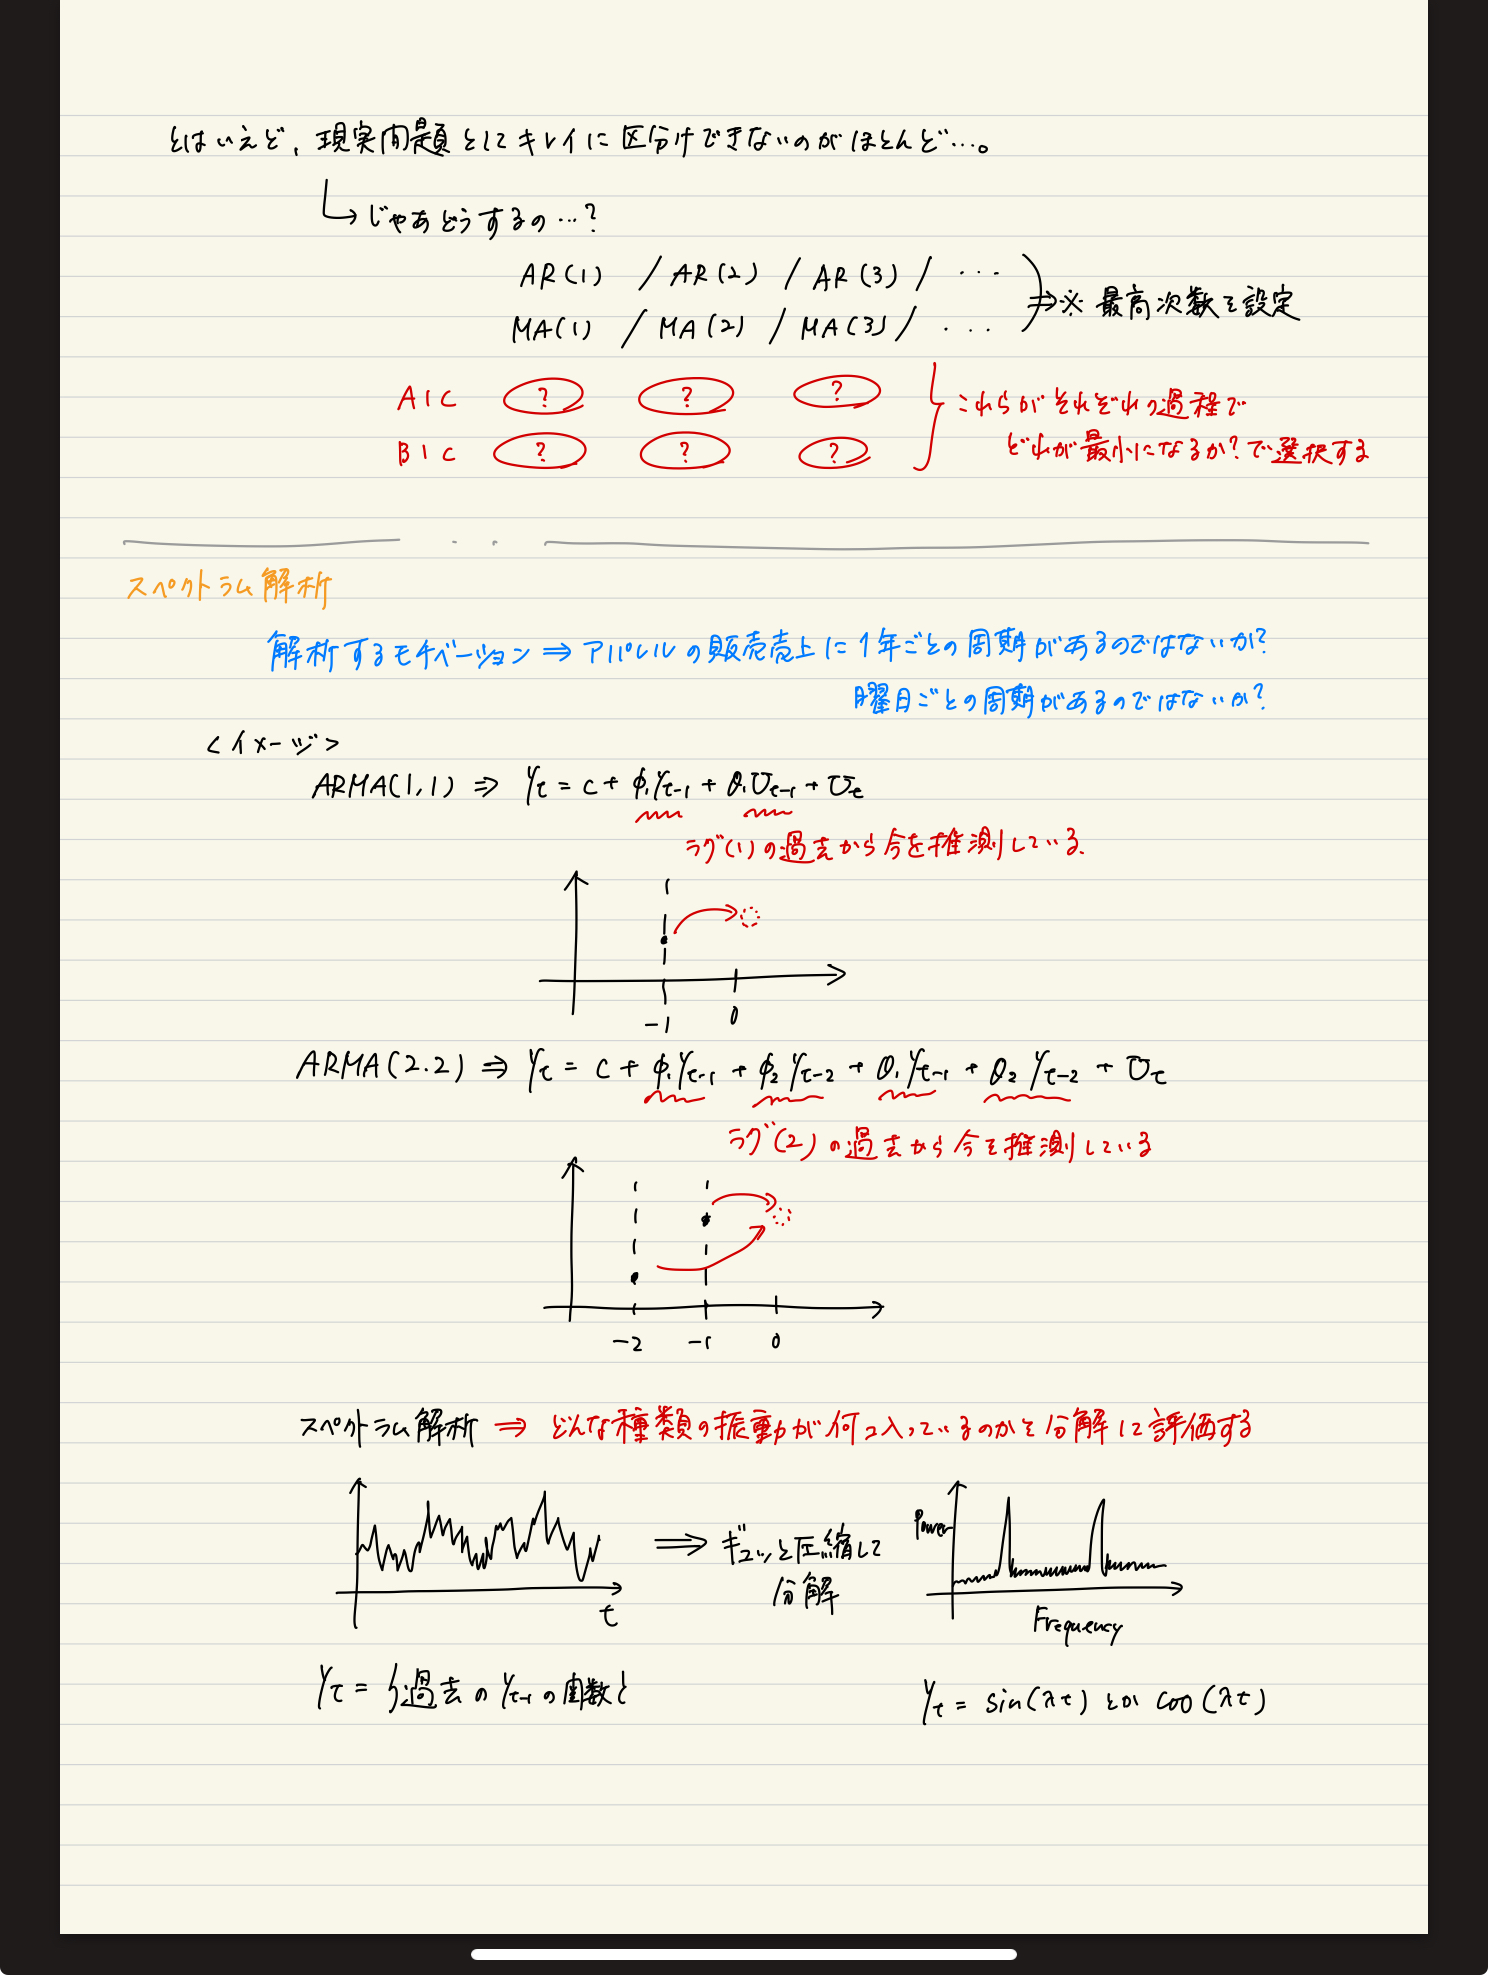 とはいえど、現実問題としてキレイに区分けできないのがほとんど…。
じゃあどうするの…?
AR(1) / AR(2) / AR(3) / ...
MA(1) / MA(2) / MA(3) / ...
⇒※ 最高次数を設定
AIC ? ? ?
BIC ? ? ?
これらがそれぞれの過程で
どれが最小になるか?で選択する
スペクトラム解析
解析するモチベーション ⇒ アパレルの販売売上に1年ごとの周期があるのではないか?
曜日ごとの周期があるのではないか?
<イメージ>
ARMA(1,1) ⇒ Yt = c + φ1Yt-1 + θ1Ut-1 + Ut
ラグ(1)の過去から今を推測している.
-1 0
ARMA(2.2) ⇒ Yt = c + φ1Yt-1 + φ2Yt-2 + θ1Yt-1 + θ2Yt-2 + Ut
ラグ(2)の過去から今を推測している
-2 -1 0
スペクトラム解析 ⇒ どんな種類の振動が何コ入っているのかを分解して評価する
t
⇒ ギュッと圧縮して
分解
Power
Frequency
Yt = 過去のYt-1の関数と
Yt = sin(λt) とか cos(λt)